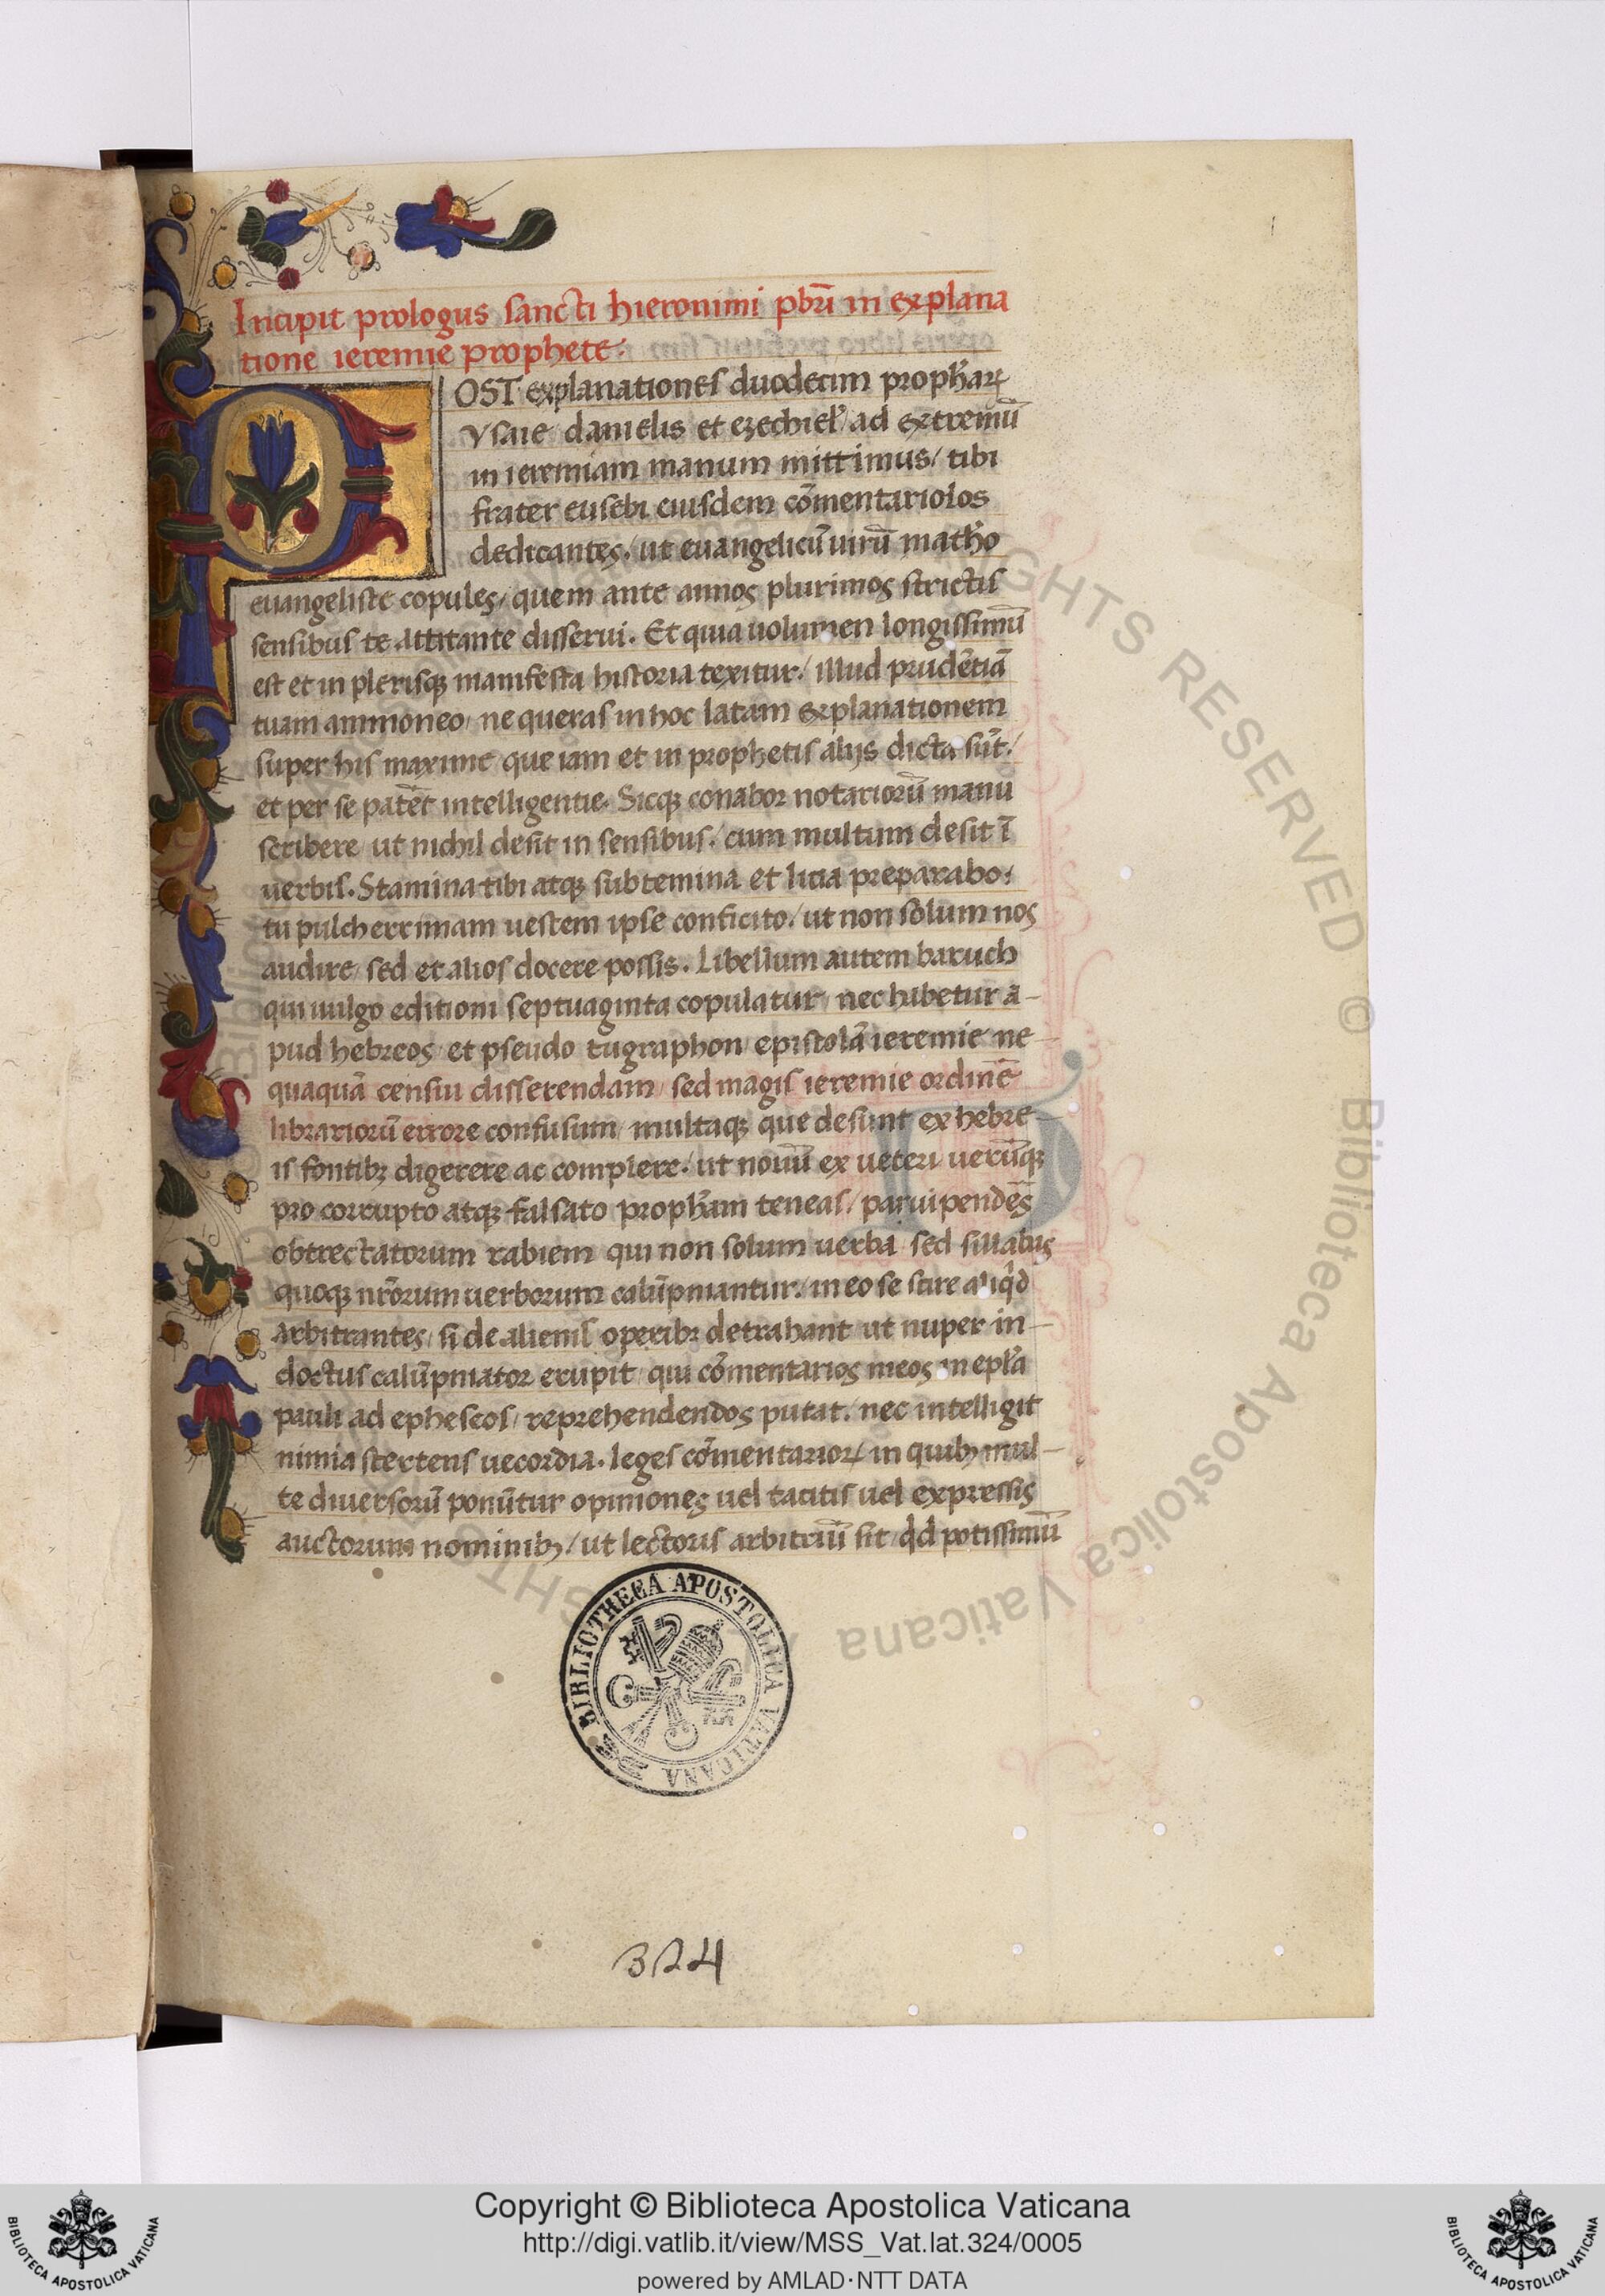 1
Incipit prologus sancti hieronimi pbri in explana
tione ieremie prophete.
POST explanationes duodecim prophar͛ꝝ
ysaie danielis et ezechiel̕/ ad extremū
in ieremiam manum mittimus/ tibi
frater eusebi eiusdem cōmentariolos
dedicantes/ ut euangelicū uirū math̕o
euangeliste copules/ quem ante annos plurimos strictis
sensibus te attitante disserui. Et quia uolumen longissimū
est et in plerisqꝫ manifesta historia texitur/ illud prudētiā
tuam ammoneo/ ne queras in hoc latam explanationem
super his maxime que iam et in prophetis alijs dicta sūt/
et per se patēt intelligentie. Sicqꝫ conabor notariorū manu
scribere/ ut nichil desit in sensibus/ cum multum desit ī
uerbis. Stamina tibi atqꝫ subtemina et licia preparabo/
tu pulcherrimam uestem ipse conficito/ ut non solum nos
audire/ sed et alios docere possis. Libellum autem baruch
qui uulgo editioni septuaginta copulatur/ nec habetur a-
pud hebreos/ et pseudo tugraphon epistolā ieremie ne-
quaquā censui disserendam/ sed magis ieremie ordinē
librariorū errore confusum/ multaqꝫ que desunt ex hebre-
is fontibꝫ digerere ac complere/ ut nouū ex ueteri uerūqꝫ
pro corrupto atqꝫ falsato proph̕am teneas/ paruipendēs
obtrectatorum rabiem qui non solum uerba sed sillabas
quoqꝫ nr̄orum uerborum calūpniantur/ in eo se scire aliqͥd
arbitrantes/ si de alienis operibꝫ detrahant ut nuper in-
doctus calūpniator erupit/ qui cōmentarios meos in epl̕a
pauli ad epheseos/ reprehendendos putat/ nec intelligit
nimia stertens uecordia. leges cōmentarioꝝ/ in quibꝫ mul-
te diuersorū ponūtur opiniones uel tacitis uel expressis
auctorum nominibꝫ/ ut lectoris arbitriū sit/ qd̕ potissimū
BIBLIOTHECA APOSTOLICA VATICANA
324
RIGHTS RESERVED © Biblioteca Apostolica Vaticana
Copyright © Biblioteca Apostolica Vaticana
http://digi.vatlib.it/view/MSS_Vat.lat.324/0005
powered by AMLAD·NTT DATA
BIBLIOTECA APOSTOLICA VATICANA
BIBLIOTECA APOSTOLICA VATICANA